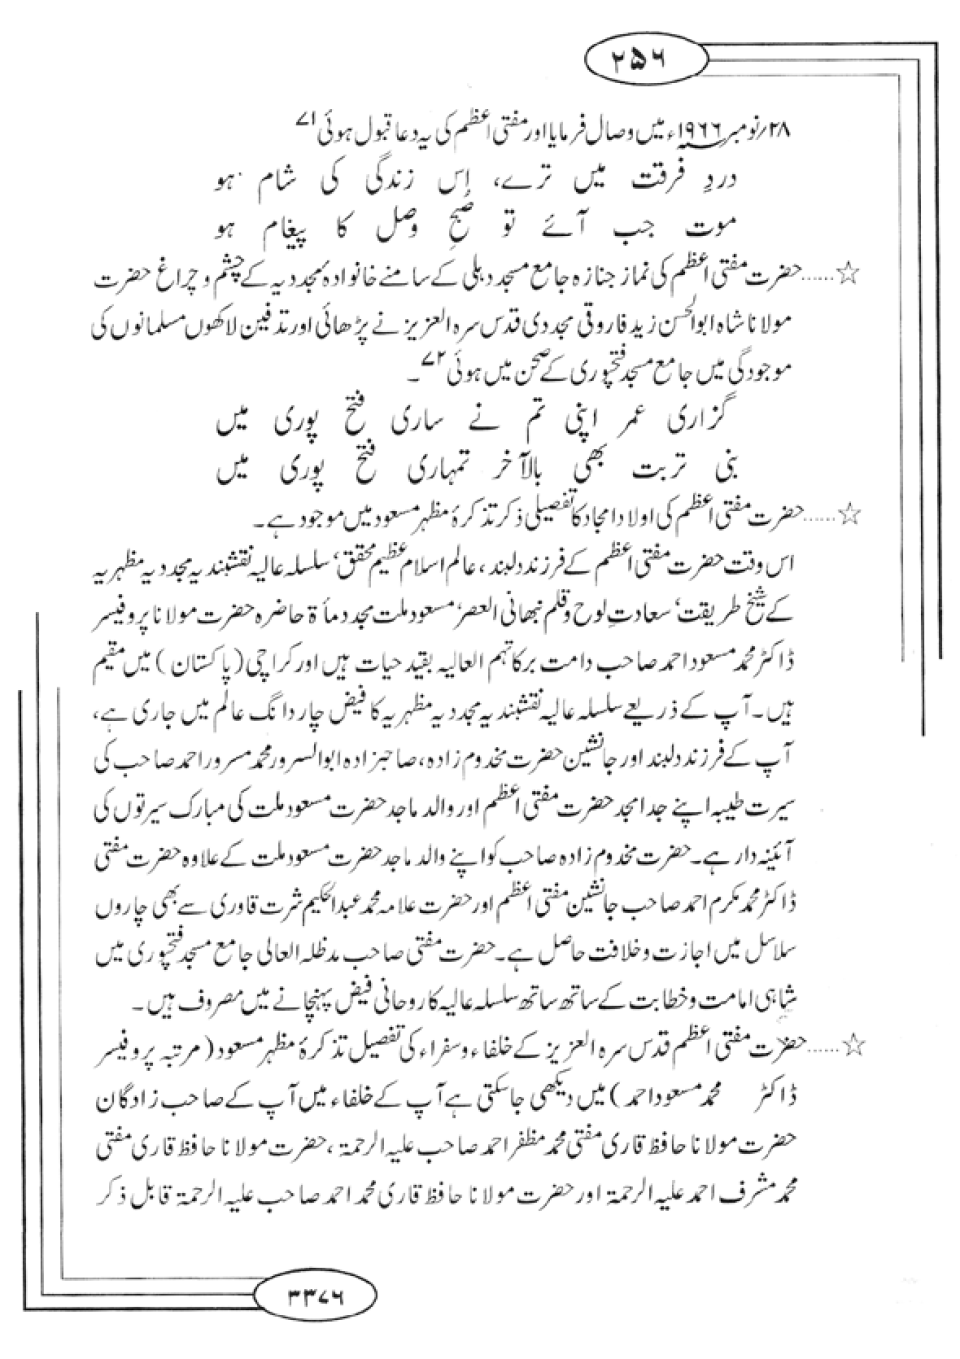 ۲۵۶
۲۸/نومبر ۱۹۶۶ء میں وصال فرمایا اور مفتی اعظم کی یہ دعا قبول ہوئی ۷۱
دردِ فرقت میں ترے، اِس زندگی کی شام ہو
موت جب آئے تو صبحِ وصل کا پیغام ہو
☆......حضرت مفتی اعظم کی نماز جنازہ جامع مسجد دہلی کے سامنے خانوادۂ مجددیہ کے چشم و چراغ حضرت
مولانا شاہ ابوالحسن زید فاروقی مجددی قدس سرہ العزیز نے پڑھائی اور تدفین لاکھوں مسلمانوں کی
موجودگی میں جامع مسجد فتحپوری کے صحن میں ہوئی ۷۲۔
گزاری عمر اپنی تم نے ساری فتح پوری میں
بنی تربت بھی بالآخر تمہاری فتح پوری میں
☆......حضرت مفتی اعظم کی اولاد امجاد کا تفصیلی ذکر تذکرۂ مظہر مسعود میں موجود ہے۔
اس وقت حضرت مفتی اعظم کے فرزند دلبند، عالم اسلام عظیم محقق‘ سلسلہ عالیہ نقشبندیہ مجددیہ مظہریہ
کے شیخ طریقت‘ سعادتِ لوح و قلم نبھانی العصر‘ مسعود ملت مجدد مأۃ حاضرہ حضرت مولانا پروفیسر
ڈاکٹر محمد مسعود احمد صاحب دامت برکاتہم العالیہ بقید حیات ہیں اور کراچی (پاکستان) میں مقیم
ہیں۔ آپ کے ذریعے سلسلہ عالیہ نقشبندیہ مجددیہ مظہریہ کا فیض چار دانگ عالم میں جاری ہے،
آپ کے فرزند دلبند اور جانشین حضرت مخدوم زادہ، صاحبزادہ ابوالسرور محمد مسرور احمد صاحب کی
سیرت طیبہ اپنے جد امجد حضرت مفتی اعظم اور والد ماجد حضرت مسعود ملت کی مبارک سیرتوں کی
آئینہ دار ہے۔ حضرت مخدوم زادہ صاحب کو اپنے والد ماجد حضرت مسعود ملت کے علاوہ حضرت مفتی
ڈاکٹر محمد مکرم احمد صاحب جانشین مفتی اعظم اور حضرت علامہ محمد عبدالحکیم شرت قاوری سے بھی چاروں
سلاسل میں اجازت و خلافت حاصل ہے۔ حضرت مفتی صاحب مدظلہ العالی جامع مسجد فتحپوری میں
شاہی امامت و خطابت کے ساتھ ساتھ سلسلہ عالیہ کا روحانی فیض پہنچانے میں مصروف ہیں۔
☆......حضرت مفتی اعظم قدس سرہ العزیز کے خلفاء و سفراء کی تفصیل تذکرۂ مظہر مسعود (مرتبہ پروفیسر
ڈاکٹر محمد مسعود احمد) میں دیکھی جاسکتی ہے آپ کے خلفاء میں آپ کے صاحب زادگان
حضرت مولانا حافظ قاری مفتی محمد مظفر احمد صاحب علیہ الرحمۃ، حضرت مولانا حافظ قاری مفتی
محمد مشرف احمد علیہ الرحمۃ اور حضرت مولانا حافظ قاری محمد احمد صاحب علیہ الرحمۃ قابل ذکر
۳۳۷۶